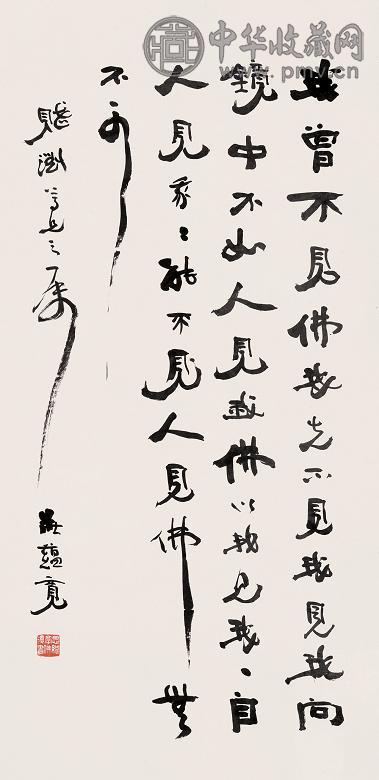 中华收藏网
www.pmv.cn
我曾不見佛我先不見我見我向
鏡中不如人見我佛以我見我〻自
人見〻能不見人見佛無
不可
淵尊兄之属
莊蘊寬